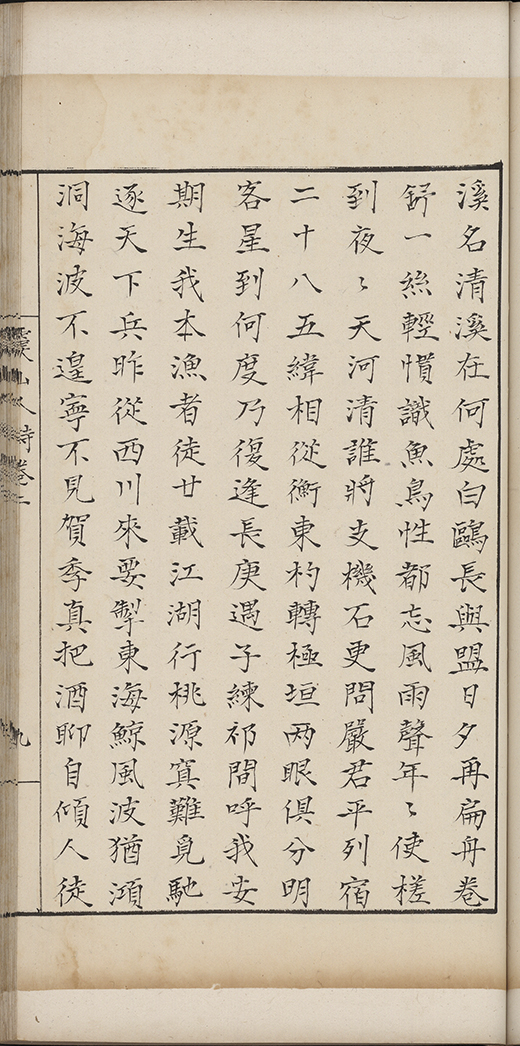 溪名清溪在何處白鷗長與盟日夕再扁舟卷
舒一絲輕慣識魚鳥性都忘風雨聲年〻使槎
到夜〻天河清誰將支機石更問嚴君平列宿
二十八五緯相從衡東杓轉極垣两眼俱分明
客星到何度乃復逢長庚遇子練祁間呼我安
期生我本漁者徒廿載江湖行桃源寘難覓馳
逐天下兵昨從西川來要掣東海鯨風波猶澒
洞海波不遑寧不見賀季真把酒聊自傾人徒
山人詩卷
九